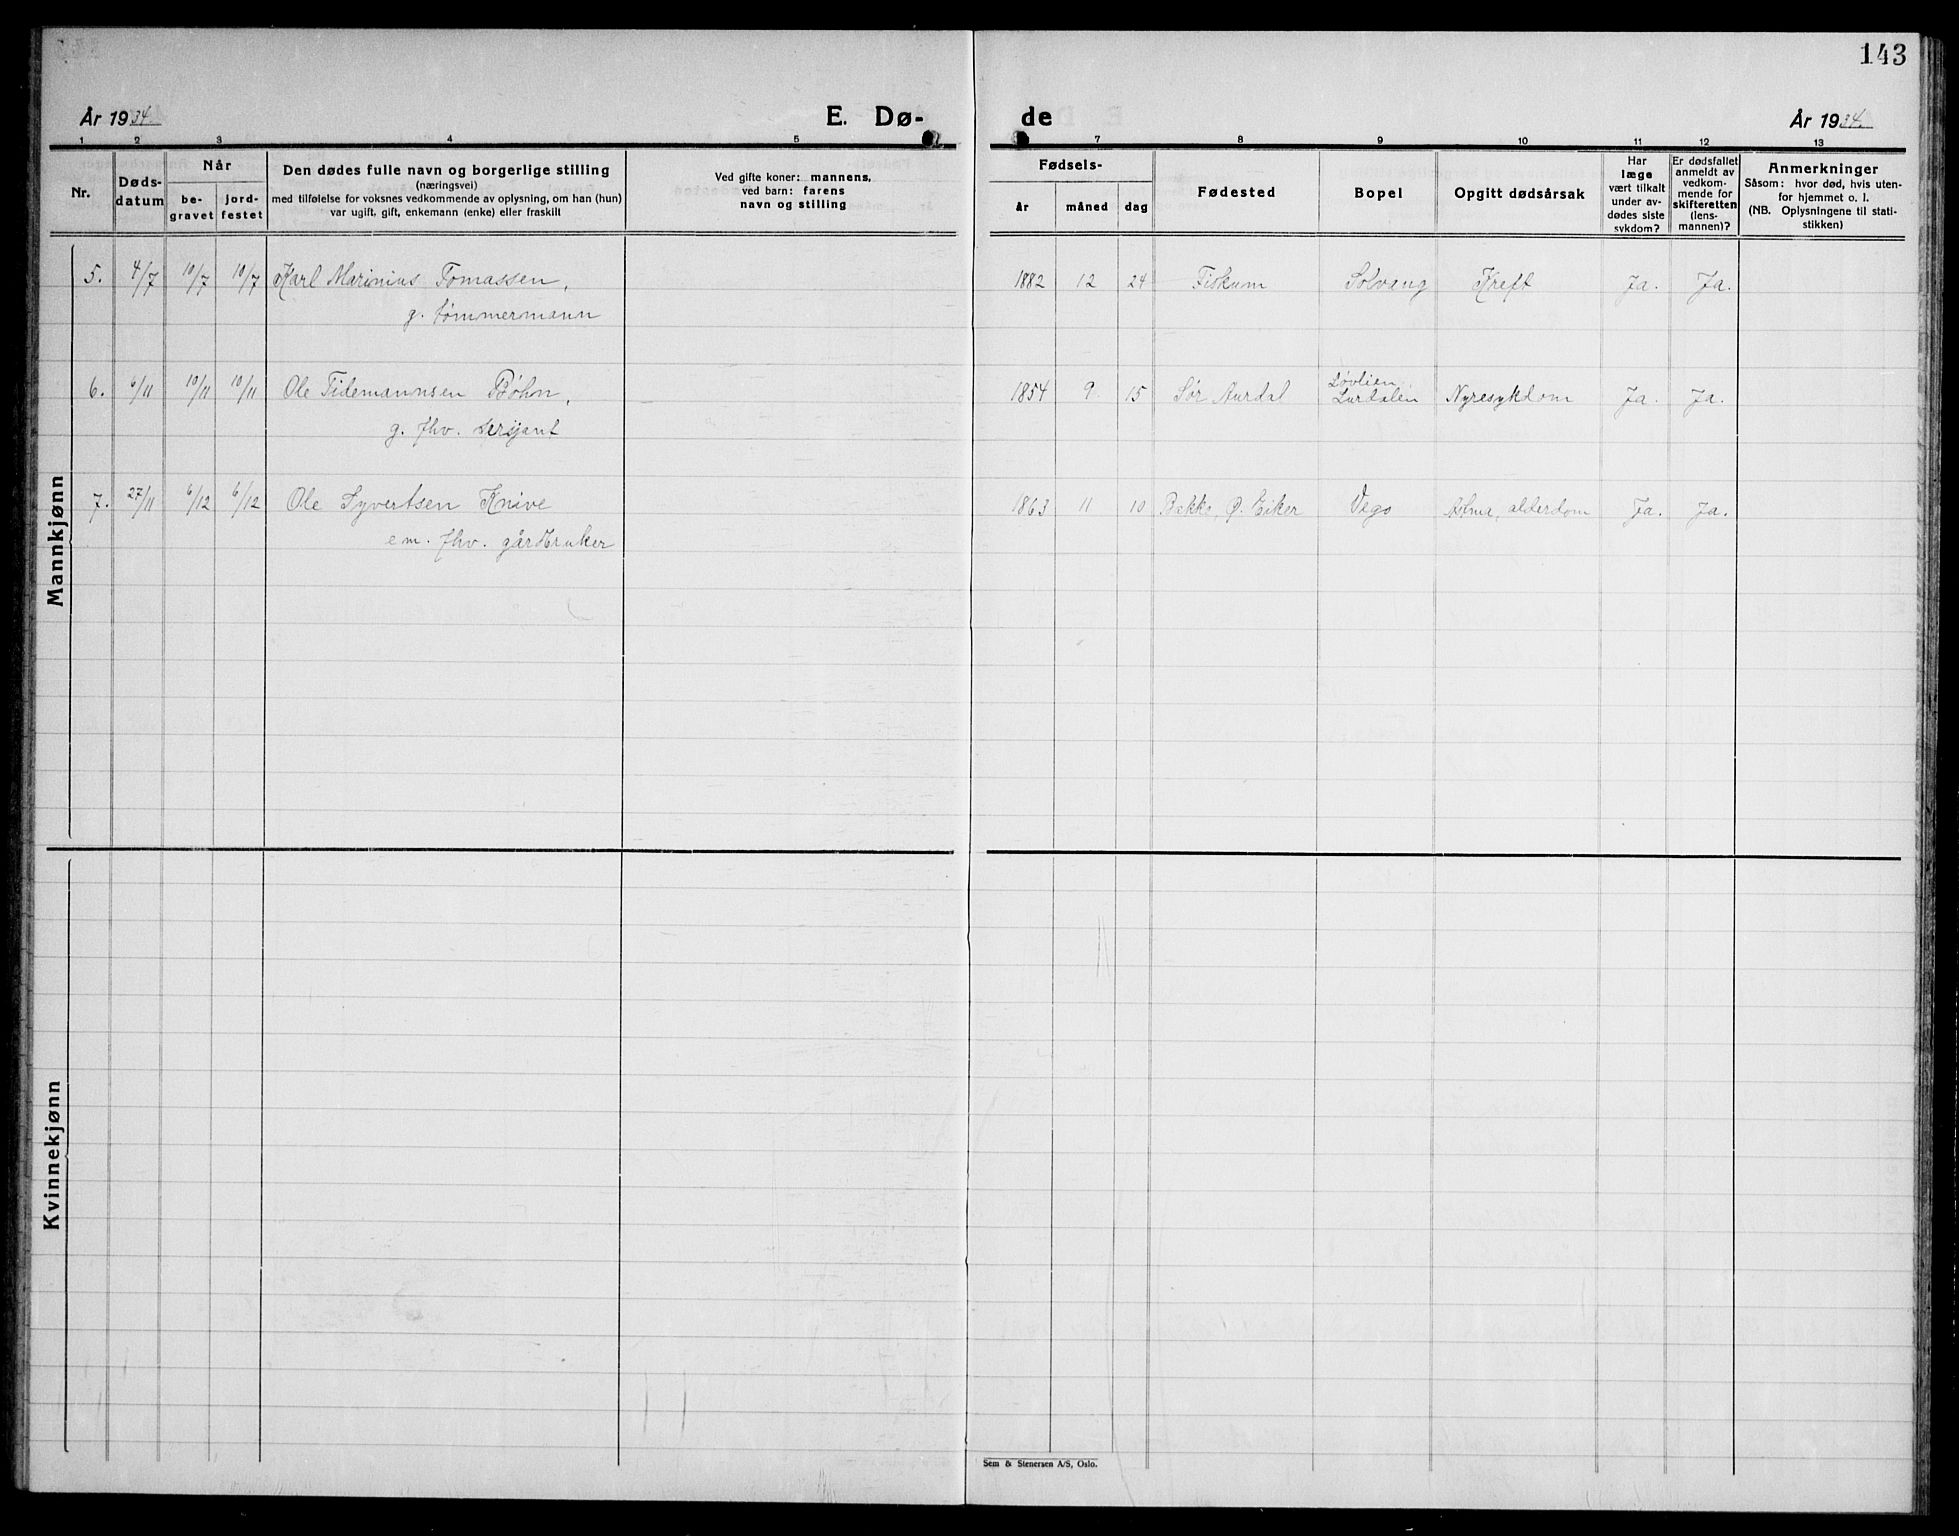 143
År 1934.
E. Dø-
de
År 1934.
1 2 3 4 5 7 8 9 10 11 12 13
Nr.
Døds-
datum
Når
be-
gravet
jord-
festet
Den dødes fulle navn og borgerlige stilling
(næringsvei)
med tilføielse for voksnes vedkommende av oplysning, om han (hun)
var ugift, gift, enkemann (enke) eller fraskilt
Ved gifte koner: mannens,
ved barn: farens
navn og stilling
Fødsels-
år
måned
dag
Fødested
Bopel
Opgitt dødsårsak
Har
læge
vært tilkalt
under av-
dødes siste
sykdom?
Er dødsfallet
anmeldt av
vedkom-
mende for
skifteretten
(lens-
mannen)?
Anmerkninger
Såsom: hvor død, hvis uten-
for hjemmet o. l.
(NB. Oplysningene til stati-
stikken)
Mannkjønn
5. 4/7 10/7 10/7 Karl Marinius Tomassen, 1882 12 24 Fiskum Solvang Kreft Ja. Ja.
g. tømmermann
Løvlien
6. 6/11 10/11 10/11 Ole Tidemannsen Bøhn, 1854 9 15 Sør Aurdal Lurdalen Nyresykdom Ja. Ja.
g. fhv. serijant
7. 27/11 6/12 6/12 Ole Syvertsen Knive 1863 11 10 Bakke, Ø. Eiker Vego Astma, alderdom Ja. Ja.
em. fhv. gårdbruker
Kvinnekjønn
Sem & Stenersen A/S, Oslo.